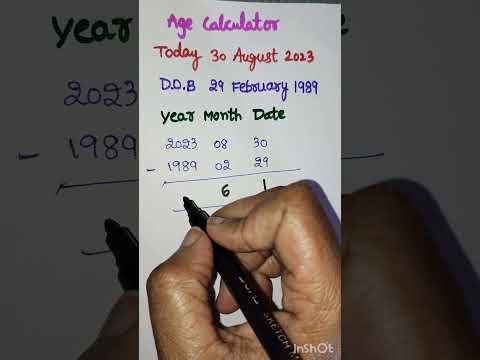 Age Calculator
Today 30 August 2023
D.O.B 29 February 1989
Year Month Date
2023 08 30
- 1989 02 29
6 1
InShOt